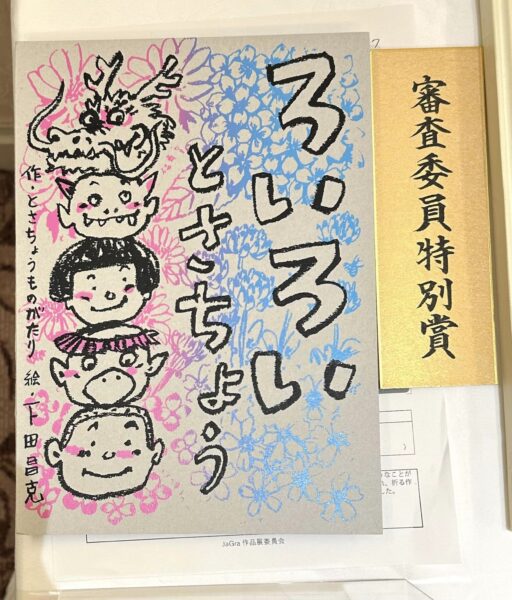 ろいろい
とさちょう
作・とさちょうものがたり 絵・下田昌克
審査委員特別賞
なことが
折る作
した。
JaGra 作品展委員会